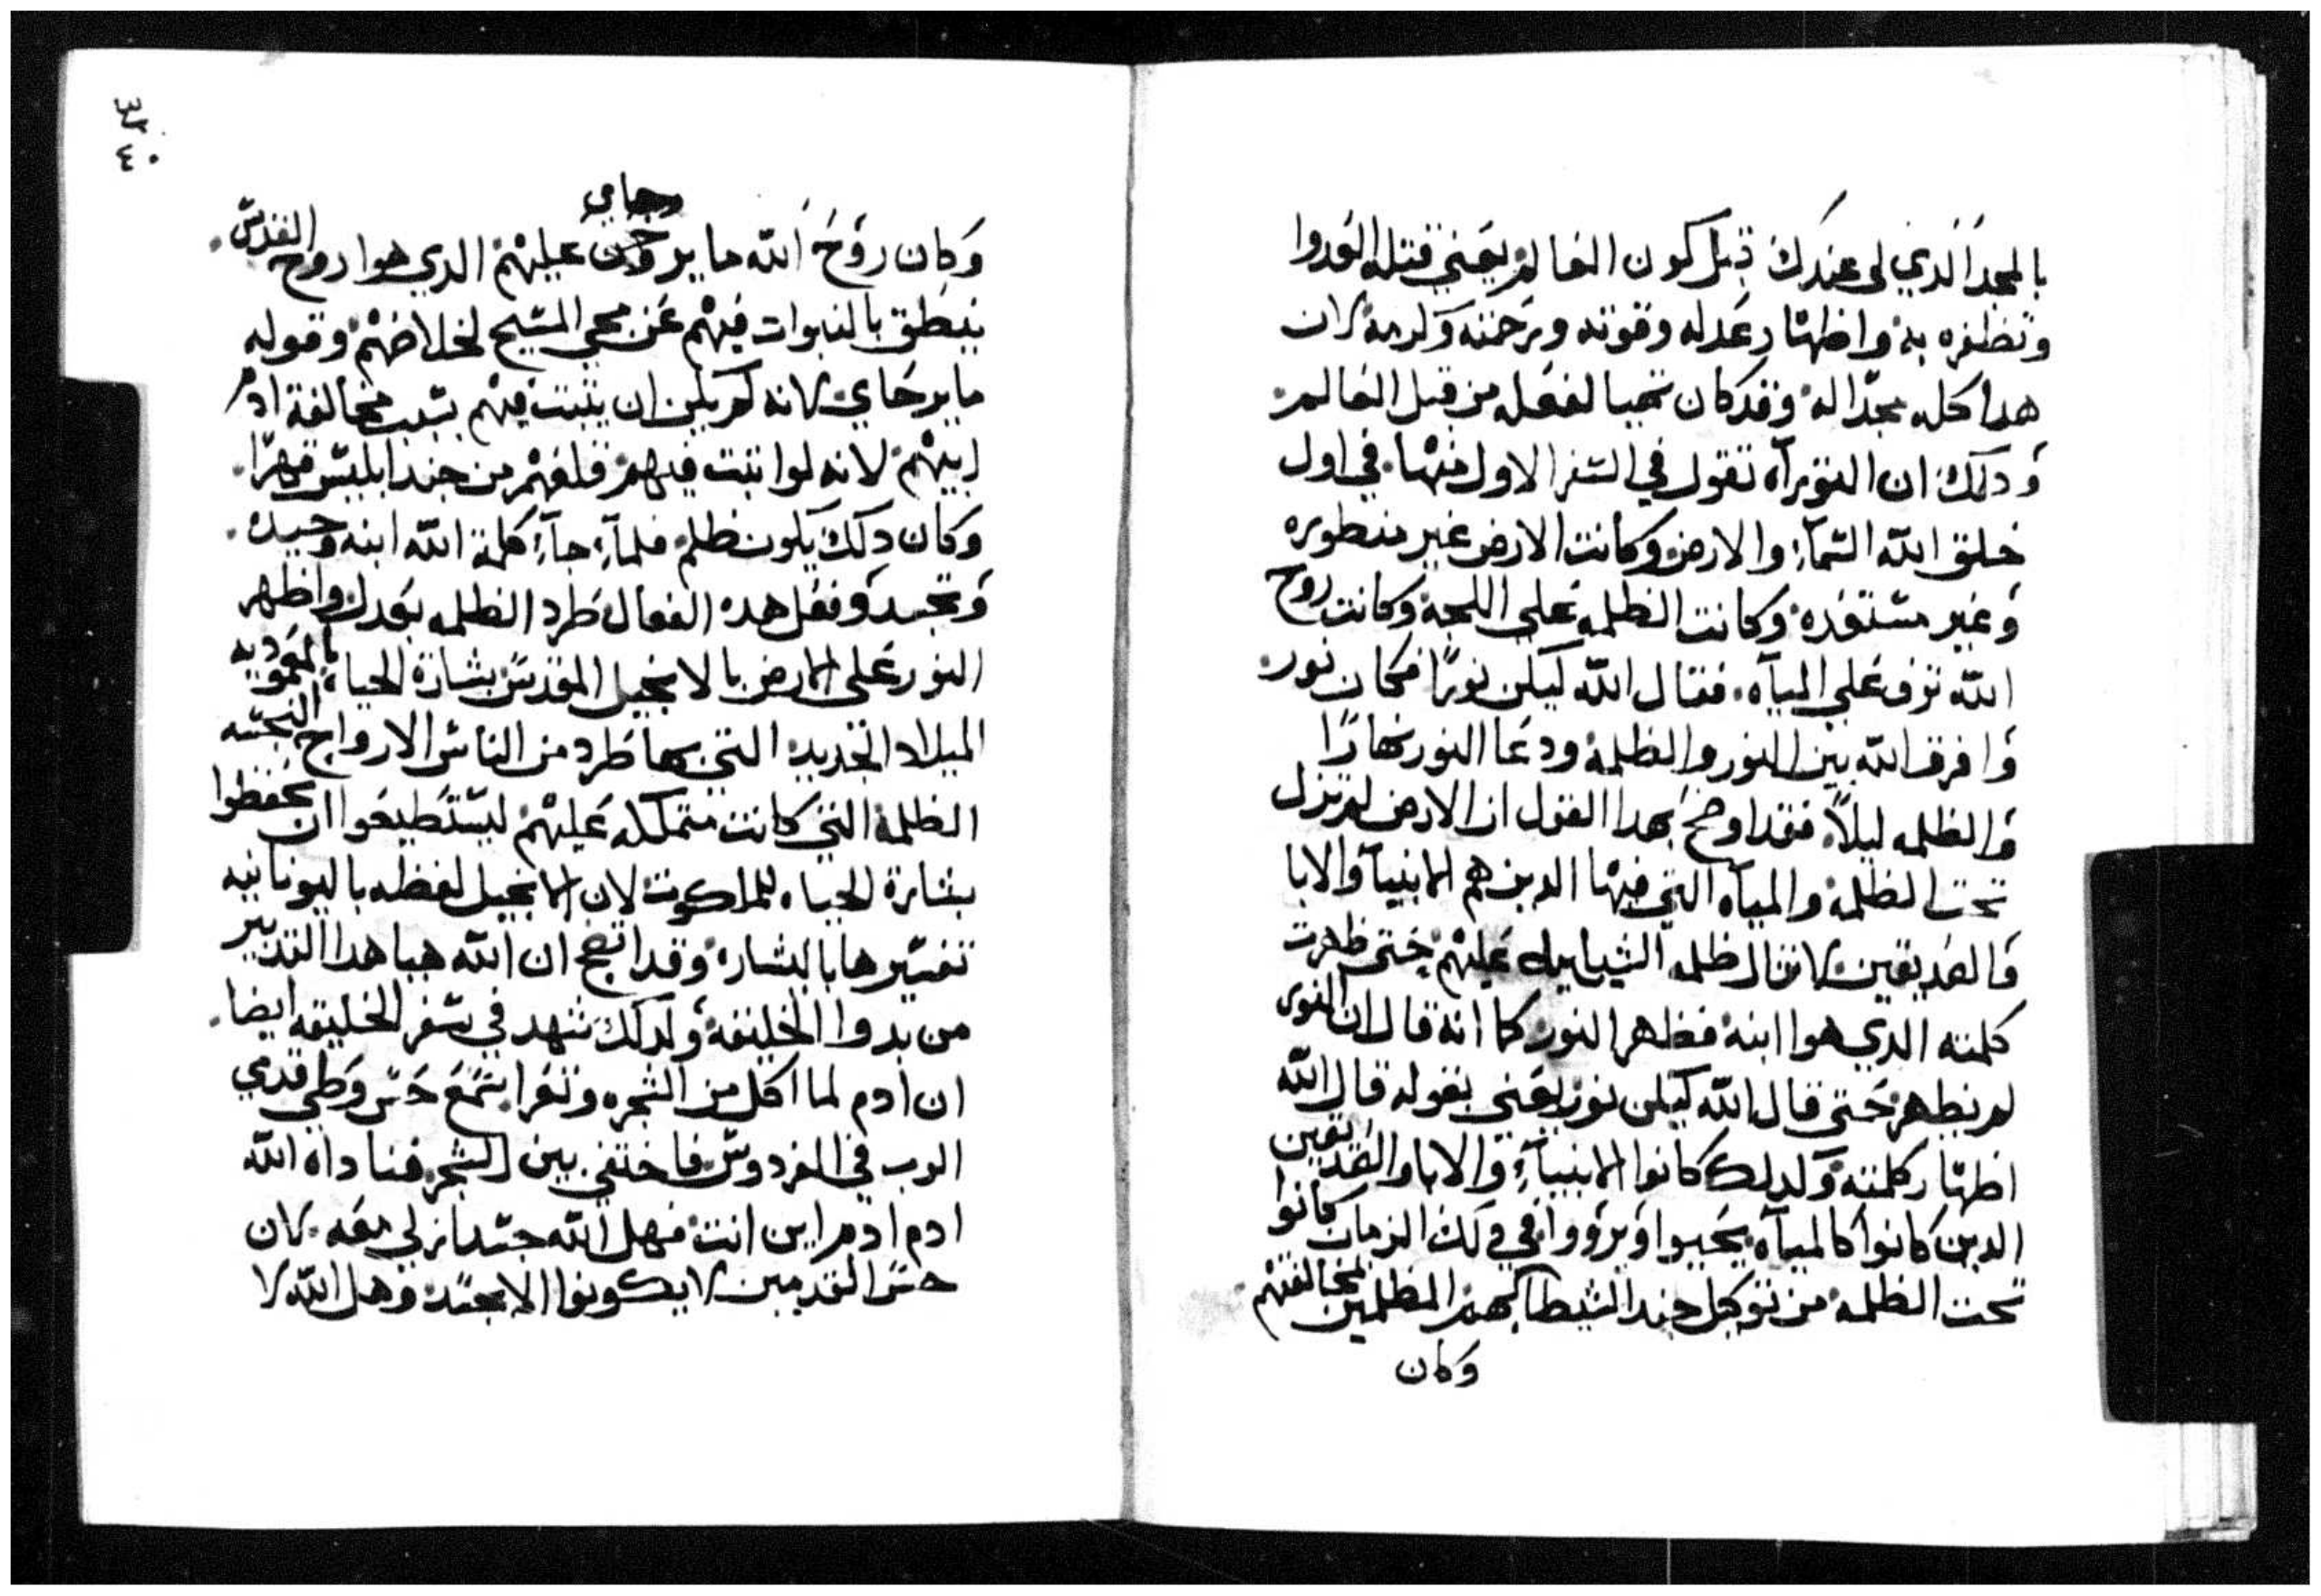 بالمجد الذي لي عندك قبل كون العالم يعني قتله العدوا
وتظفره به واظهار عدله وقوته ورحمته وكرمه لان
هدا كله مجدا له وقد كان تهيا لفعله من قبل العالم
ودلك ان التوراه تقول في السفر الاول منها في اول
خلق الله السمآء والارض وكانت الارض غير منطوره
وغير مستعده وكانت الظلمه على اللجة وكانت روح
الله ترف على المياه فقال الله ليكن نورا فكان نور
وافرق الله بين النور والظلمة ودعا النور نهارا
والظلمه ليلا فقد اوضح بهدا القول ان الارض لم تزل
تحت الظلمة والمياه التي فيها الدين هم الانبيآ والابا
والصديقين كانت ال ظلمه عليهم حتى ظهرت
كلمته الدي هوا ابنه فظهر النور كما انه قال ان النور
لم يظهر حتى قال الله ليكن نور يعني بقوله قال الله
اظهار كلمته ولدلك كانوا الانبيآء والابا والصديقين
الدين كانوا كالمياه يحيوا ويرووا في دلك الزمان كانوا
تحت الظلمة من توكل جند الشيطان بهم المظلمين لمخالفتهم
وكان
٣٢
٤٠
وجاي
وكان روح الله ما يرف عليهم الدي هوا روح القدس
ينطق بالنبوات فيهم عن مجي المسيح لخلاصهم وقوله
ما يرجاي لانه لم يكن ان يثبت فيهم بسبب مخالفة ادم
ابيهم لانه لوا ثبت فيهم قلعهم من جند ابليس قهرا
وكان دلك يكون ظلم فلمآ جآء كلمة الله ابنه وحيده
وتجسد وفعل هده الفعال طرد الظلمه بعدل واظهر
النور على الارض بالانجيل المقدس بشارة الحياه بالمعموديه
الميلاد الجديد التي بها طرد من الناس الارواح النجسه
الظلمة التي كانت متملكه عليهم ليستطيعوا ان يحفظوا
بشارة الحياه للملكوت لان الانجيل لفظه باليونانيه
تفسيرها بالبشاره وقد اتضح ان الله هيا هدا التدبير
من بدوا الخليقة ولدلك شهد في سفر الخليقه ايضا
ان ادم لما اكل من الشجره وتعرا سمع حس وطي قدمي
الرب في الفردوس فاختفي بين الشجر فناداه الله
ادم ادم اين انت فهل الله جسدانزلي معه لان
حس القدمين لا يكونوا الا بجسد وهل الله لا